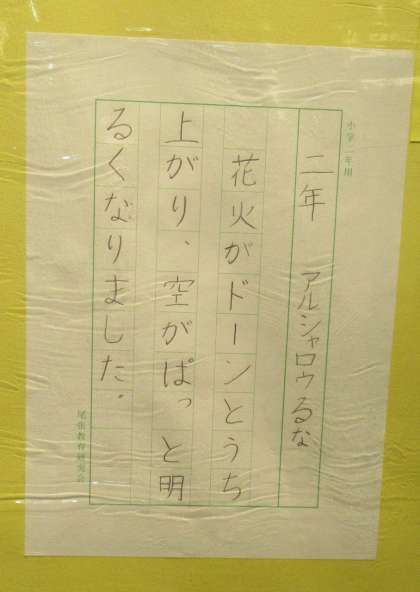 小学二年用
二年 アルシャロウるな
花火がドーンとうち
上がり、空がぱっと明
るくなりました。
尾張教育研究会